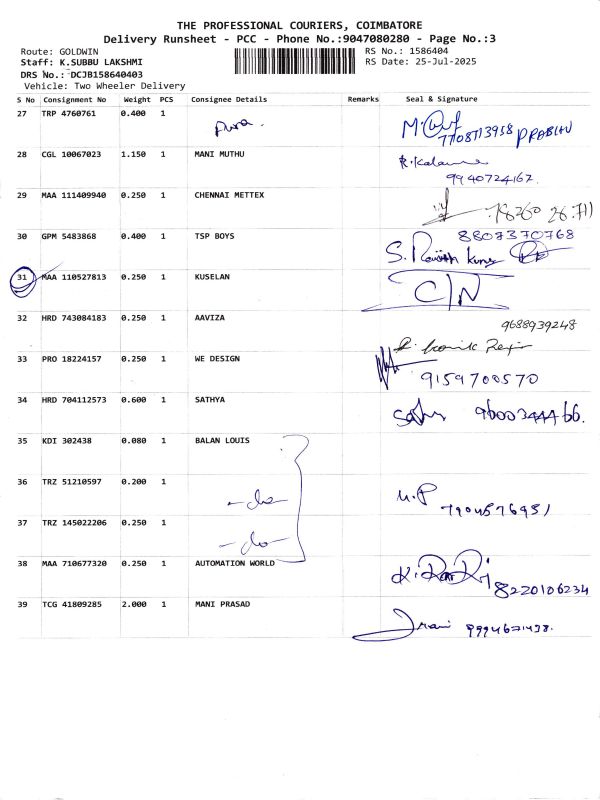 THE PROFESSIONAL COURIERS, COIMBATORE
Delivery Runsheet - PCC - Phone No.:9047080280 - Page No.:3
Route: GOLDWIN
RS No.: 1586404
Staff: K.SUBBU LAKSHMI
RS Date: 25-Jul-2025
DRS No.: DCJB158640403
Vehicle: Two Wheeler Delivery
S No Consignment No Weight PCS Consignee Details Remarks Seal & Signature
27 TRP 4760761 0.400 1
PRABHU
28 CGL 10067023 1.150 1 MANI MUTHU
9940724167.
29 MAA 111409940 0.250 1 CHENNAI METTEX
30 GPM 5483868 0.400 1 TSP BOYS 8807370768
31 MAA 110527813 0.250 1 KUSELAN C/N
32 HRD 743084183 0.250 1 AAVIZA 9688939248
33 PRO 18224157 0.250 1 WE DESIGN
9159700570
34 HRD 704112573 0.600 1 SATHYA
35 KDI 302438 0.080 1 BALAN LOUIS
36 TRZ 51210597 0.200 1
-do-
37 TRZ 145022206 0.250 1
-do-
38 MAA 710677320 0.250 1 AUTOMATION WORLD
8220106234
39 TCG 41809285 2.000 1 MANI PRASAD